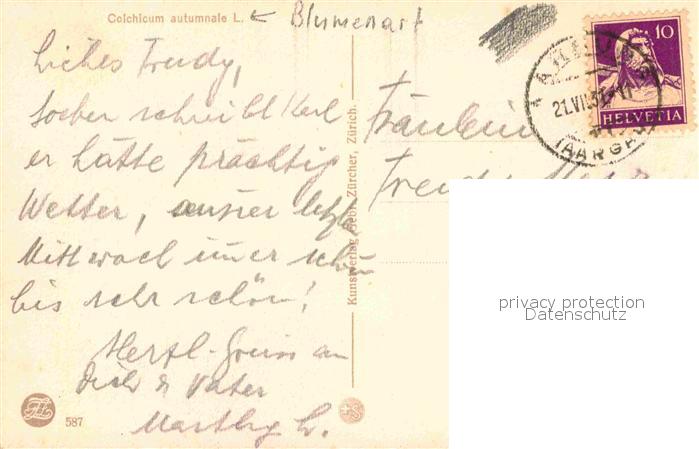 Colchicum autumnale L. ← Blumenart
Liebes Trudy,
soeben schreibt Karl
er hätte prächtig
Wetter, ausser letzten
Mittwoch immer schön
bis sehr schön!
Herzl. Gruss an
Dich & Vater
587
Kunstverlag Gebr. Zürcher, Zürich.
Fräulein
Trudy
10
HELVETIA
21.VII.
(AARGAU)
privacy protection
Datenschutz